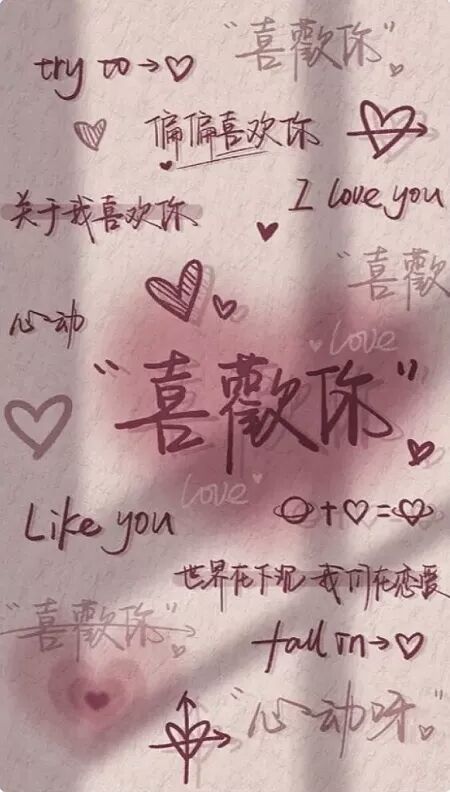 "喜歡你"
try to→♡
偏偏喜欢你
I love you
关于我喜欢你
"喜歡
心动
love
"喜歡你"
love
Like you
世界在下沉 我们在恋爱
"喜歡你"
fall in→♡
"心动呀。"